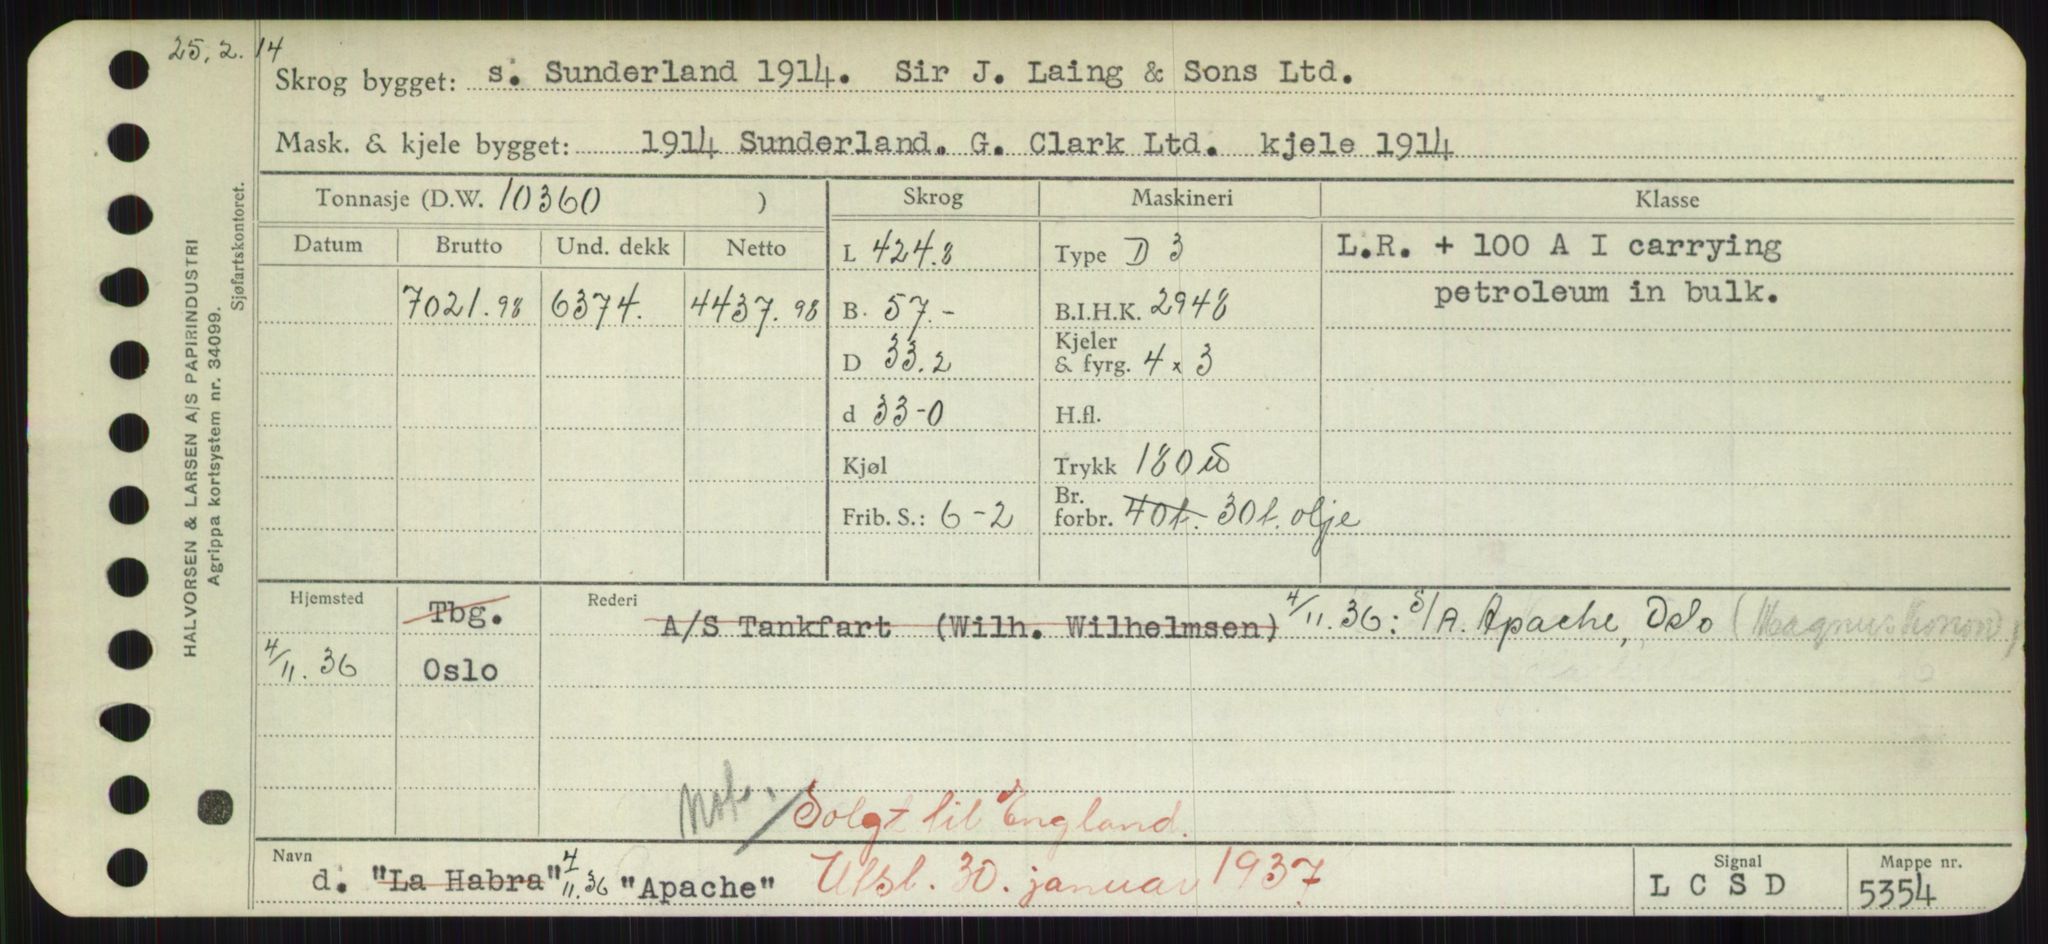 25.2.14
Skrog bygget: s. Sunderland 1914. Sir J. Laing & Sons Ltd.
Mask. & kjele bygget: 1914 Sunderland. G. Clark Ltd. kjele 1914
Tonnasje (D.W. 10360 ) Skrog Maskineri Klasse
Datum Brutto Und. dekk Netto L 424.8 Type D 3 L.R. + 100 A I carrying
petroleum in bulk.
7021.98 6374. 4437.98 B. 57.- B.I.H.K. 2948
D 33.2 Kjeler & fyrg. 4 x 3
d 33-0 H.fl.
Kjøl Trykk 180
Frib. S.: 6-2 Br. forbr. 40t. 30t. olje
Hjemsted Tbg. Rederi A/S Tankfart (Wilh. Wilhelmsen) 4/11.36: S/A. Apache, Oslo (Magnus Konow)
4/11.36 Oslo
Solgt til England.
Navn d. "La Habra" 4/11.36 "Apache" Utsl. 30. januar 1937 Signal LCSD Mappe nr. 5354
HALVORSEN & LARSEN A/S PAPIRINDUSTRI
Agrippa kortsystem nr. 34099.
Sjøfartskontoret.